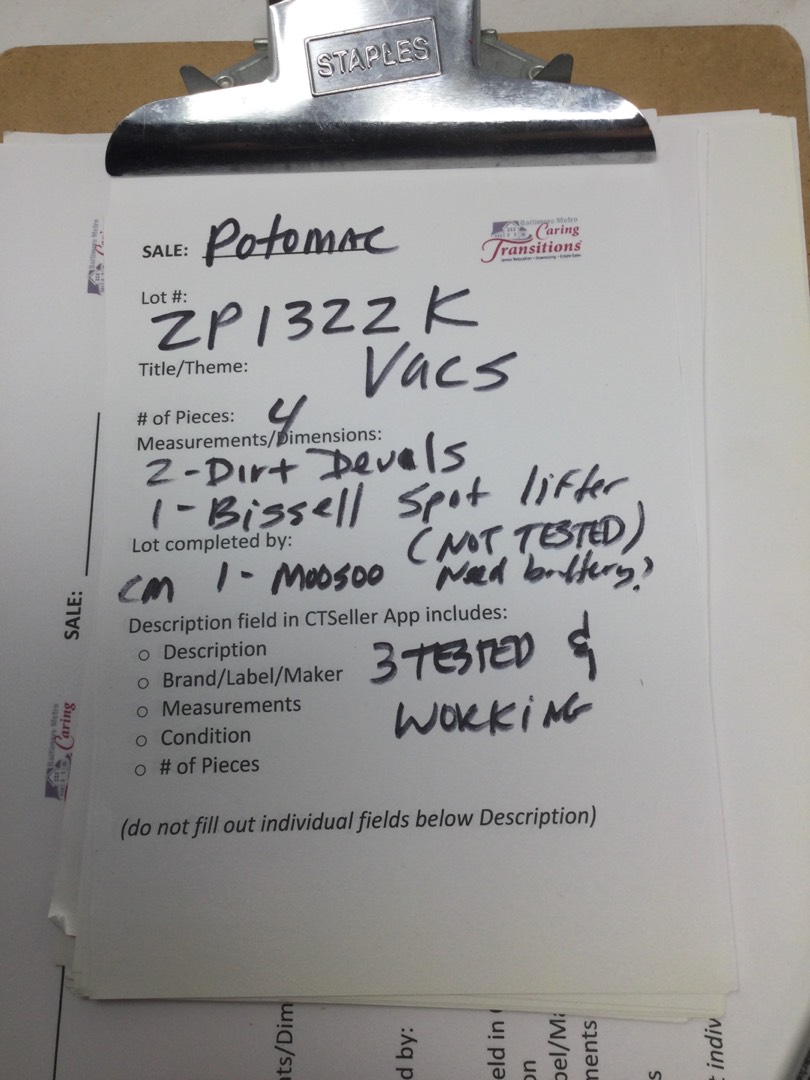 STAPLES
SALE: Potomac
Baltimore Metro
Caring
Transitions
Lot #:
ZP1322K
Title/Theme: Vacs
# of Pieces: 4
Measurements/Dimensions:
2-Dirt Devals
1-Bissell Spot lifter
(NOT TESTED)
Lot completed by:
CM 1-Moosoo Need battery?
Description field in CTSeller App includes:
○ Description
○ Brand/Label/Maker
○ Measurements
○ Condition
○ # of Pieces
3 TESTED &
WORKING
(do not fill out individual fields below Description)
SALE:
Baltimore Metro
Caring
ts/Dim
d by:
eld in
on
bel/Ma
nents
s
indiv